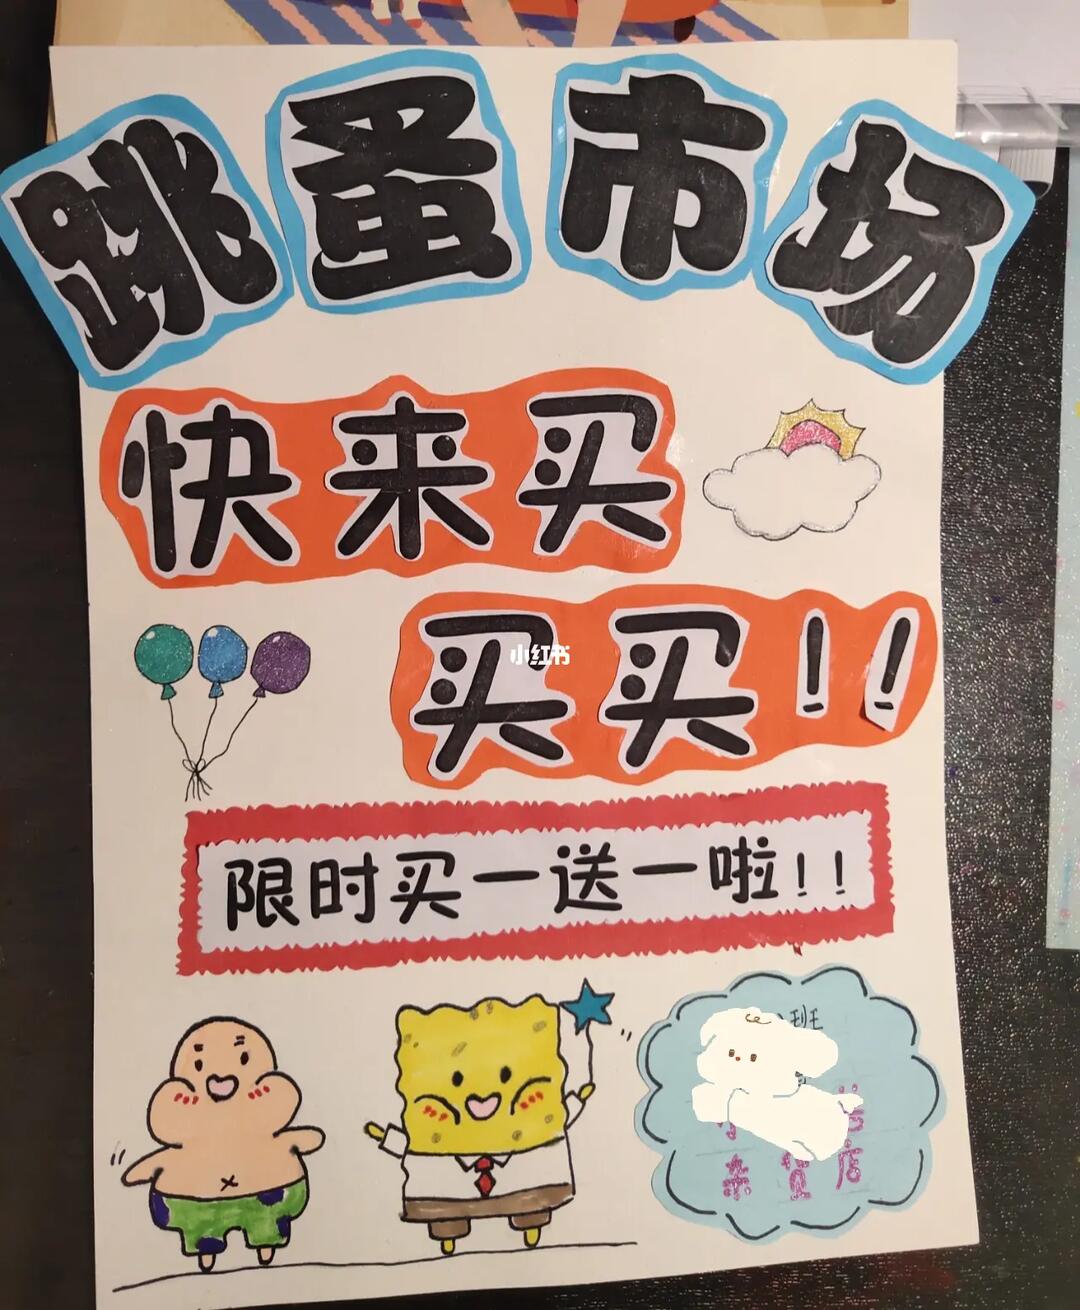 跳蚤市场
快来买
买买!!
小红书
限时买一送一啦!!
班
杂货店